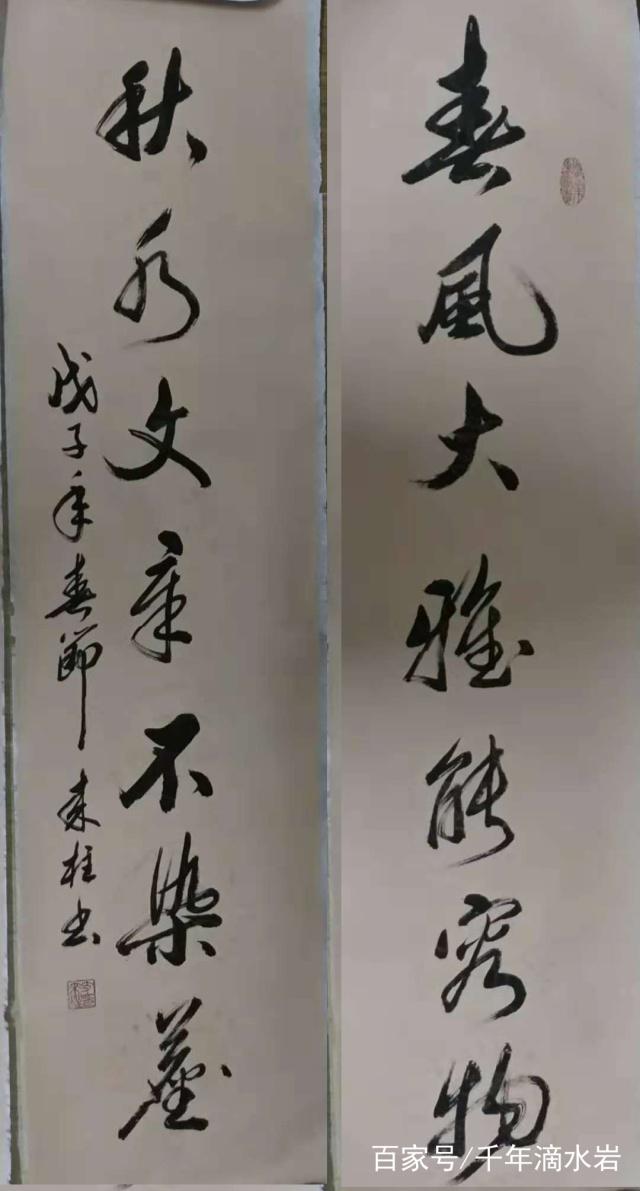 春風大雅能容物
秋水文章不染塵
戊子年春節 來柱书
百家号/千年滴水岩